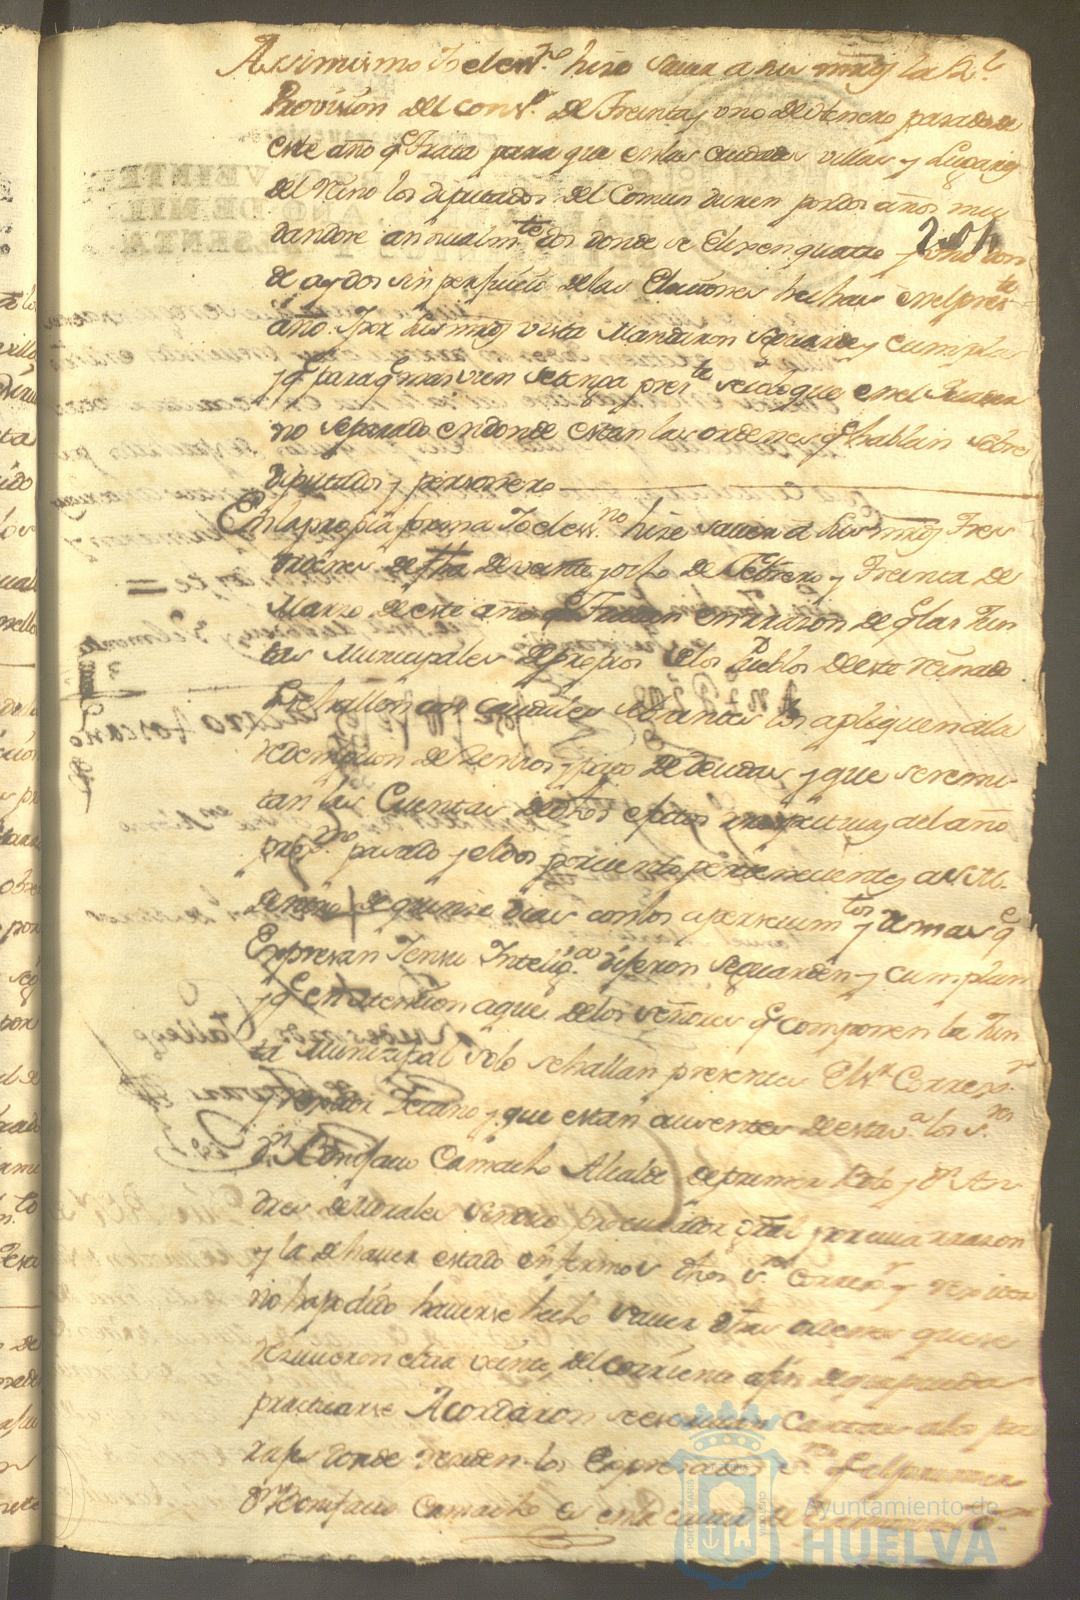 Assimismo Yo el essno. hise sauer a sus mrds la Rl.
Provision del Consº. de Treinta y uno de Henero pasado de
este año q Trata para que en las ciudades villas y Lugares
del Reino los diputados del Comun duren por dos años mu
dandose annualmte. dos donde se elixen quatro y uno don
de ay dos sin perjuicio de las Elecciones hechas en el preste.
año. Y por sus mrds vista Mandaron se guarde y cumpla
y q para q mas vien se tenga preste. se coloque en el
no separado en donde estan las ordenes q hablan sobre
diputados y personero
En la propia forma Yo el essno. hise sauer a sus mrds Tres
ordenes de fha de veinte y ocho de Febrero y Treinta de
Marzo de este año q Tratan en rrason de q las Jun
tas Municipales de propios de los Pueblos de este reinado
q se hallen con caudales sobrantes los apliquen a la
redempcion de Zensos y pago de deudas y que se remi
tan las Cuentas de dhos efectos respectivas del año
proxmo. pasado y el dos por ciento pertenecientes a S.M.
dentro de quinse dias con los apersevimtos. y demas q
Expresan Y en su Inteligª. dijeron se guarden y cumplan
y q en atencion a que de los señores q componen la Jun
ta Municipal solo se hallan presentes El sr. Correxr.
y rexidor Decano y que estan ausentes de esta vª. los sres.
Dn. Bonifacio Camacho Alcalde de primer Voto y Dn. An
dres de Morales sindico procurador Gral y por cuia rrason
y la de hauer estado enfermos dhos sres. Correxr. y rexidor
no ha podido hauerse hecho sauer dhas ordenes que se
resivieron el dia veinte del corriente a fin de que pueda
practicarse Acordaron se escriuan Cartas a los pa
rajes donde residen los Expresados sres. q el primero
Dn. Bonifacio Camacho es en la ciudad de
Ayuntamiento de
HUELVA